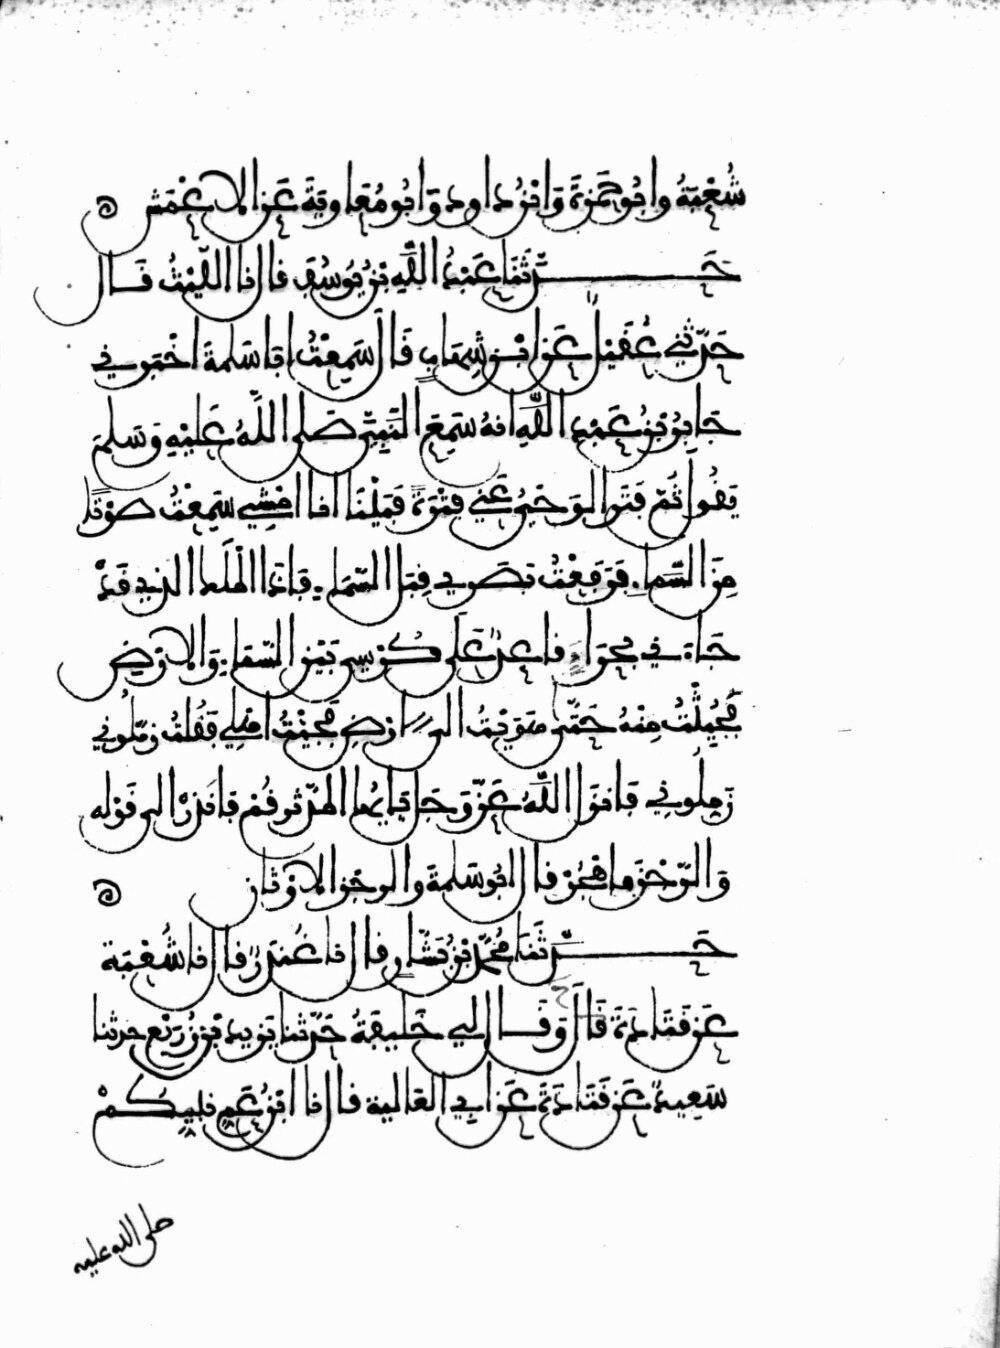 شُعْبَةُ وابُو حَمْزَةَ وَابْنُ داود وَابُو مُعَاوِيَةَ عَنِ الاعْمَشِ
حَدَّثَنَا عَبْدُ اللَّهِ بْنُ يُوسُفَ قال نا اللَّيْثُ قَال
حَدَّثَنِي عُقَيْلٌ عَنِ ابْنِ شِهَابٍ قَالَ سَمِعْتُ ابَا سَلمةَ اخْبَرني
جَابِرُ بْنُ عَبْدِ اللَّهِ انهُ سَمِعَ النَّبِيَّ صَلى اللَّهُ عَلَيْهِ وَسَلمَ
يَقُولُ ثُمَّ فَتَرَ الوَحْيُ عَنِّي فَتْرَةً فَبَيْنَا انا امْشِي سَمِعْتُ صَوْتًا
مِنَ السَّمَاءِ فَرَفَعْتُ بَصَرِي قِبَلَ السَّمَاءِ فَاذَا الْمَلَكُ الذِي قَدْ
جَاءَ في بحِرَاءٍ قاعِدٌ عَلَى كُرْسِيٍ بَيْنَ السَّمَاءِ وَالارْضِ
فَجُئِثْتُ مِنْهُ حَتَّى هَوَيْتُ الى الارْضِ فَجِئْتُ اهْلِي فَقُلتُ زَمِّلُونِي
زَمِلُونِي فَانْزَلَ اللَّهُ عَزَّ وَجَل يَا ايُّهَا الْمُدَّثِرُ قُمْ فَانذِرْ الى قَوْلِهِ
وَالرِّجْزَ فاهْجُرْ قال ابُو سَلَمَةَ وَالرِجْزَ الاوْثَان
حَدَّثَنَا مُحَمَّدُ بْنُ بَشَّارٍ قال نا غُنْدَرٌ قال نا شُعْبَة
عَنْ قَتَادَةَ قَالَ وَقَال لِي خَلِيفَةُ حَدَّثنا يَزِيدُ بْنُ زُرَيْعٍ حدثنا
سَعِيدٌ عَنْ قَتَادَةَ عَنْ ابِي العَالِيَةِ قال نا ابْنُ عَمِ نَبِيِكُمْ
صلى الله عليه